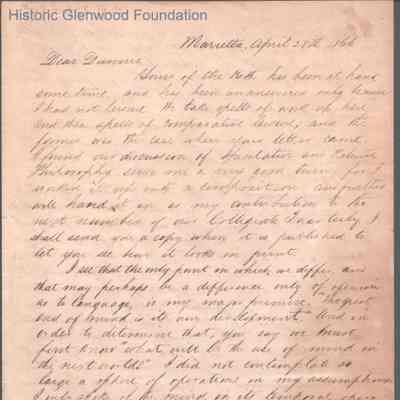 Historic Glenwood Foundation
Marietta, April 28th 1866
Dear
Yours of the 10th has been at hand
some time, and has been unanswered only because
I had not leisure. We take spells of work up here
and then spells of comparative leisure, and the
former was the case when your letter came.
I found our discussion of Speculative and
Philosophy since me a very good turn, for I
worked it up into a composition and
will hand it in as my contribution to the
next number of our Collegiate Quarterly. I
shall send you a copy when it is published to
let you see how it looks in print.
I see that the only point on which we differ, and
that may perhaps be a difference only of opinion
as to language, is my major premise, "the great
end of mind is its own development." And in
order to determine that, you say we must
first know "what will be the use of mind in
the next world." I did not contemplate so
large a sphere of operations in my assumption
I only spoke of the mind in its temporal